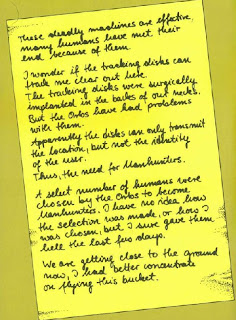 These deadly machines are effective,
many humans have met their
end because of them.
I wonder if the tracking disks can
track me clear out here.
The tracking disks were surgically
implanted in the backs of our necks.
But the Orbs have had problems
with them.
Apparently the disks can only transmit
the location, but not the identity
of the user.
Thus, the need for Manhunters.
A select number of humans were
chosen by the Orbs to become
Manhunters. I have no idea how
the selection was made, or how I
was chosen, but I sure gave them
hell the last few days.
We are getting close to the ground
now, I had better concentrate
on flying this bucket.